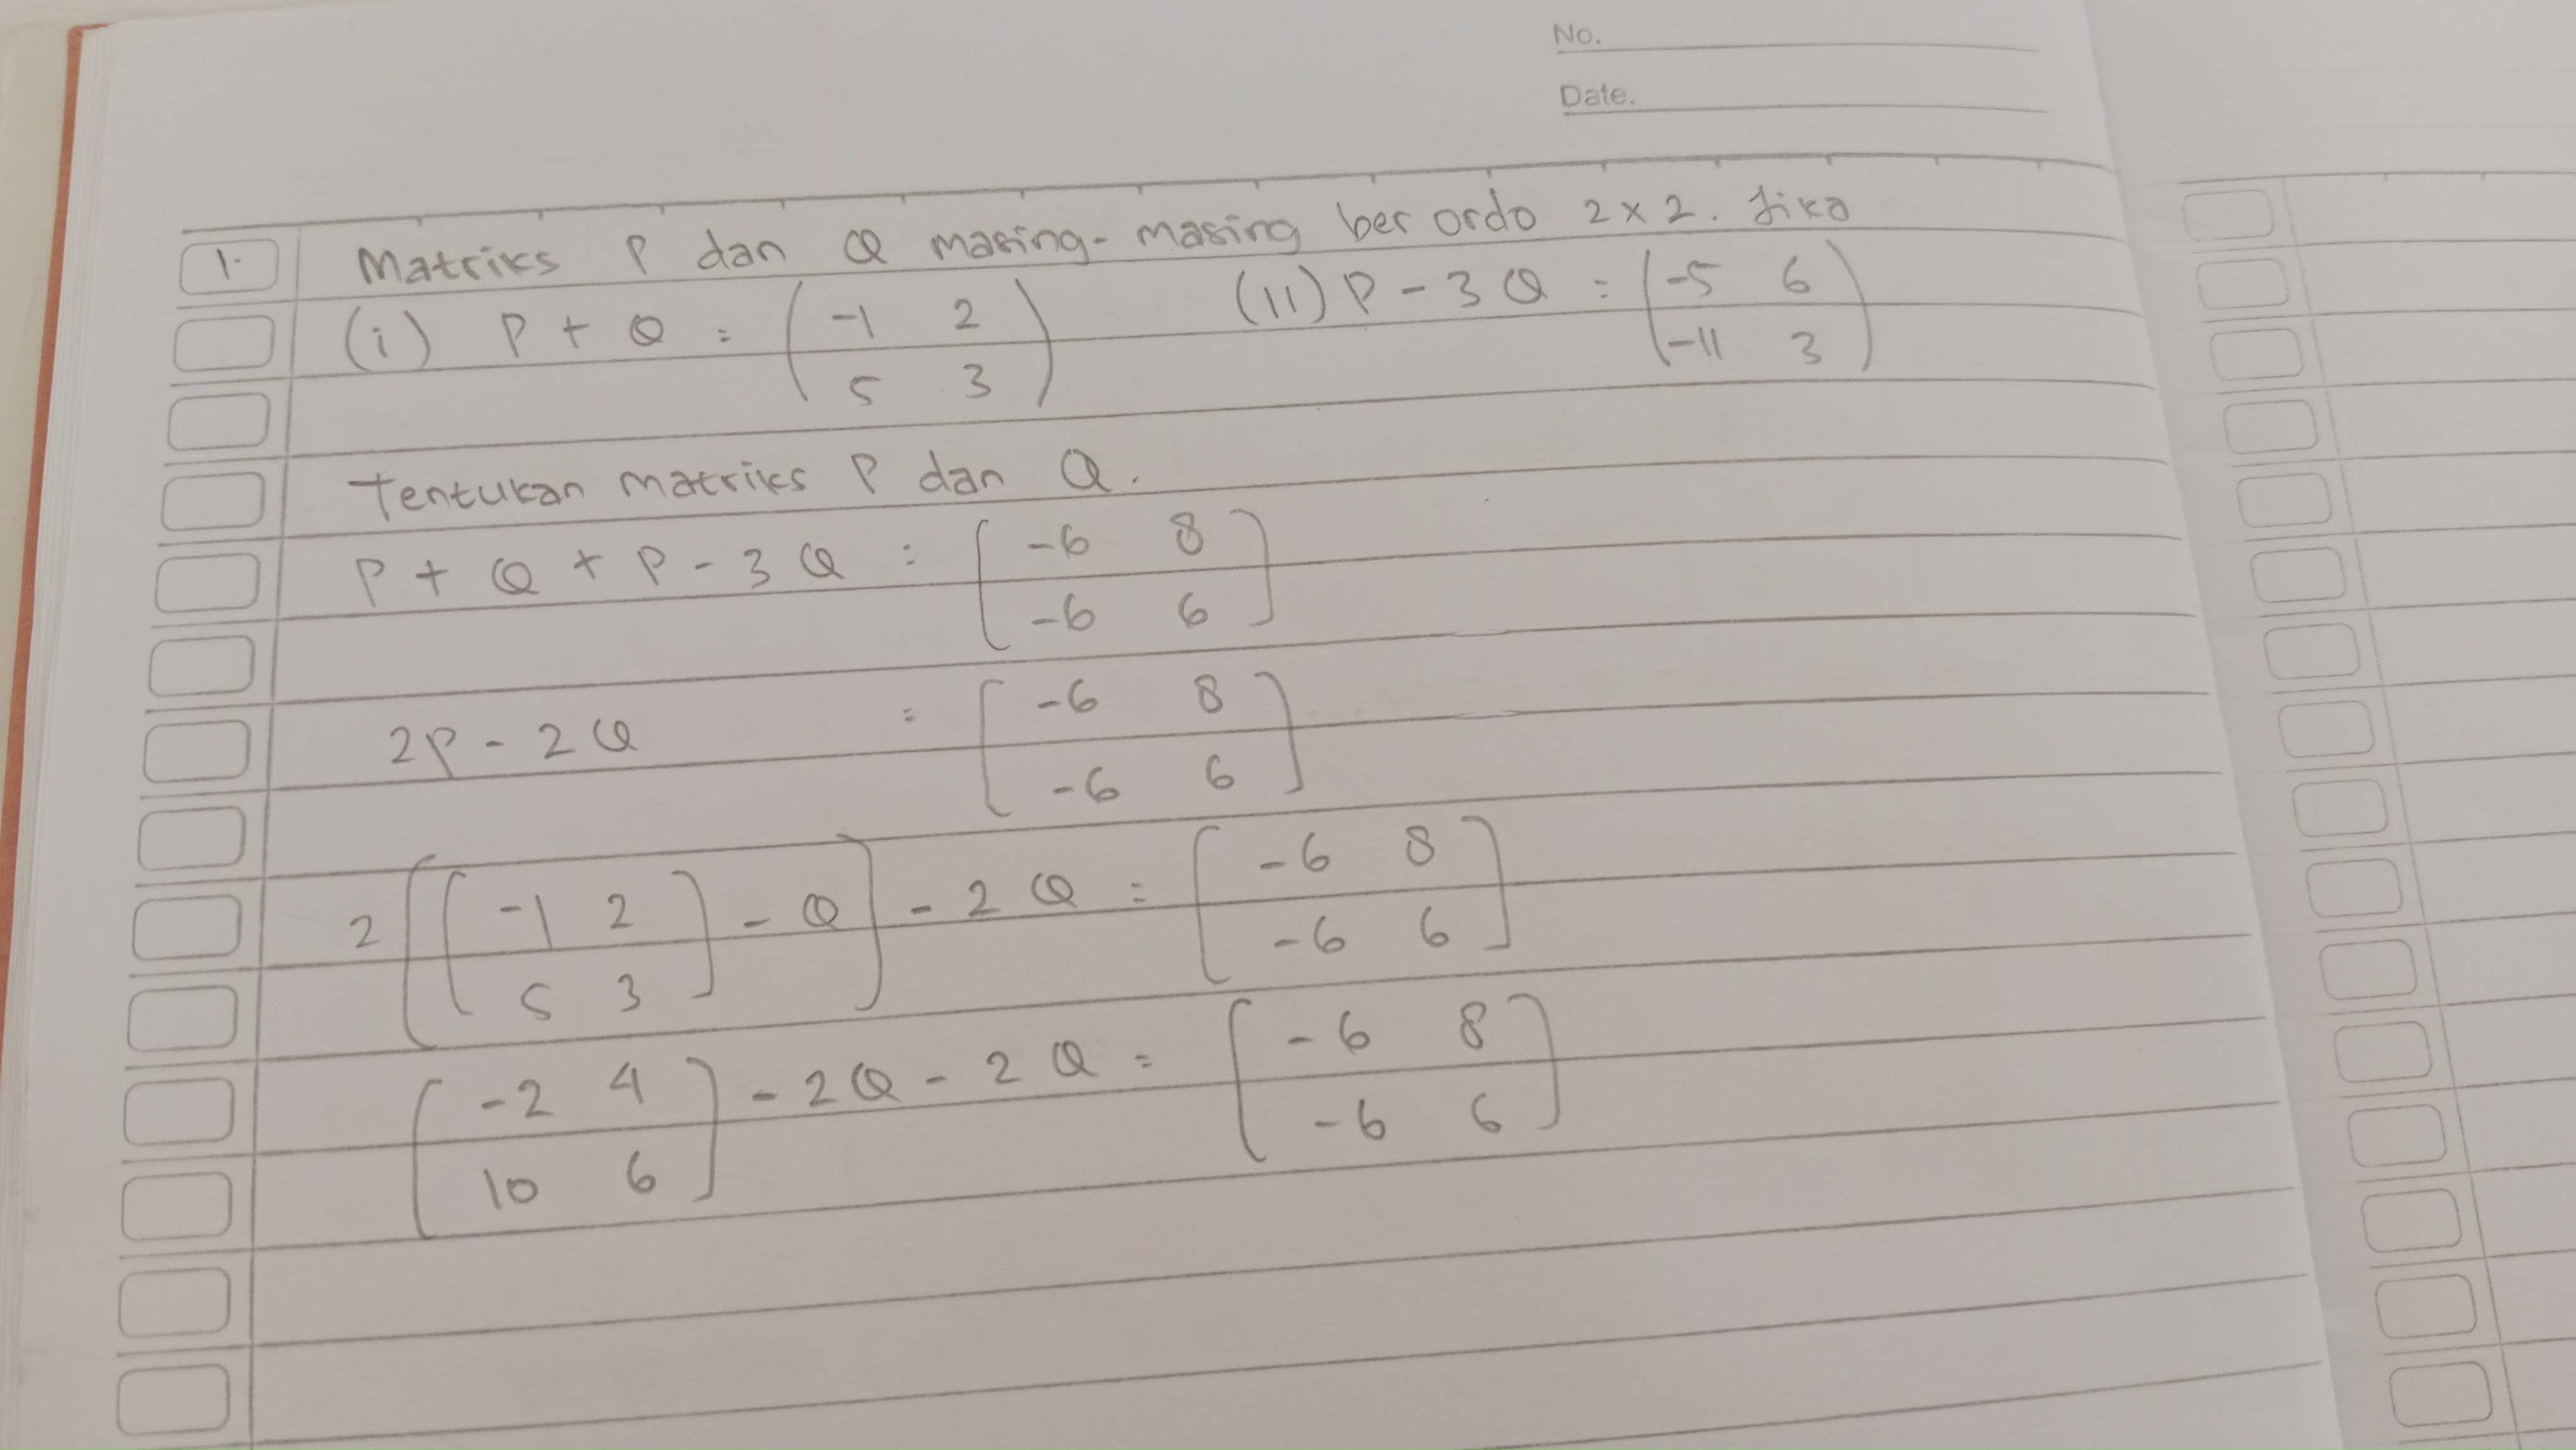 No.
Date.
1. Matriks P dan Q masing-masing ber ordo 2 x 2. Jika
(i) P + Q = (-1 2 (ii) P - 3Q = (-5 6
5 3) -11 3)
Tentukan matriks P dan Q.
P + Q + P - 3Q = [-6 8
-6 6]
2P - 2Q = [-6 8
-6 6]
2 [[-1 2 - Q] - 2Q = [-6 8
5 3] -6 6]
[-2 4 - 2Q - 2Q = [-6 8
10 6] -6 6]